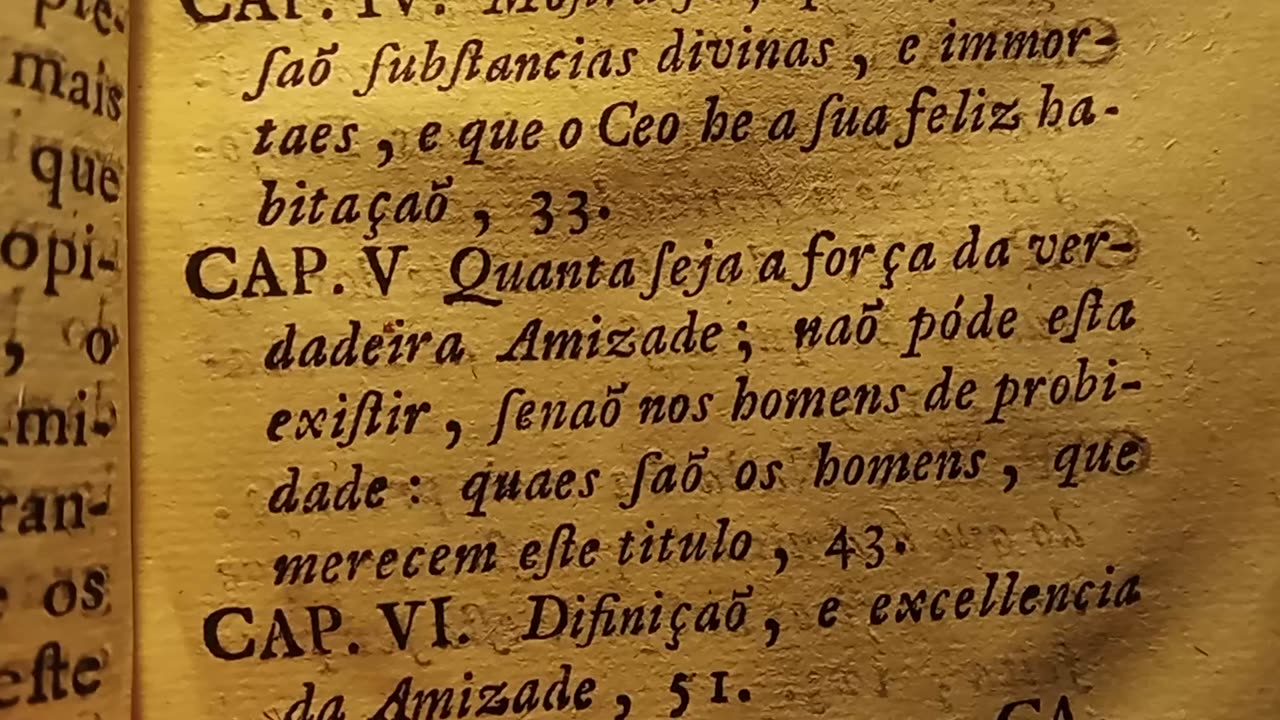 mais
que
opi-
, o
mi-
ran-
os
este
CAP. IV.
ſaõ ſubſtancias divinas, e immor-
taes, e que o Ceo he a ſua feliz ha-
bitaçaõ, 33.
CAP. V Quanta ſeja a força da ver-
dadeira Amizade; naõ póde eſta
exiſtir, ſenaõ nos homens de probi-
dade: quaes ſaõ os homens, que
merecem eſte titulo, 43.
CAP. VI. Difiniçaõ, e excellencia
da Amizade, 51.
CA